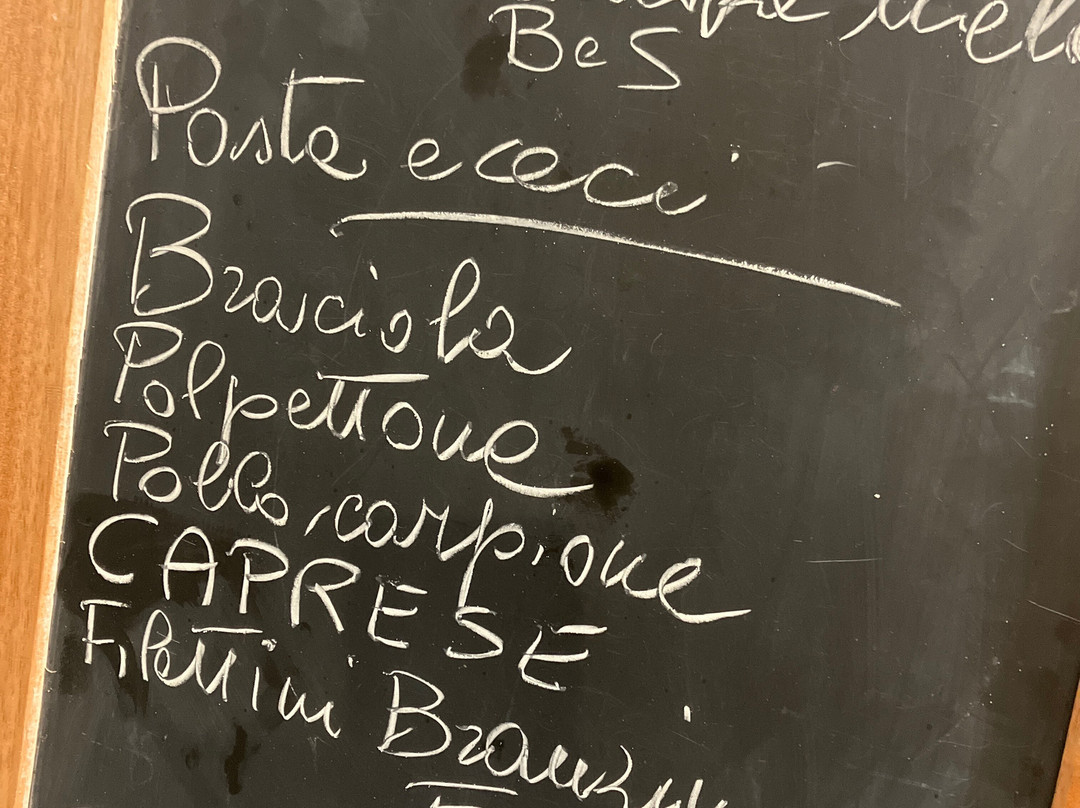 BeS
Pasta e ceci
Brasciola
Polpettone
Pollo carpione
CAPRESE
Filettini Branzin